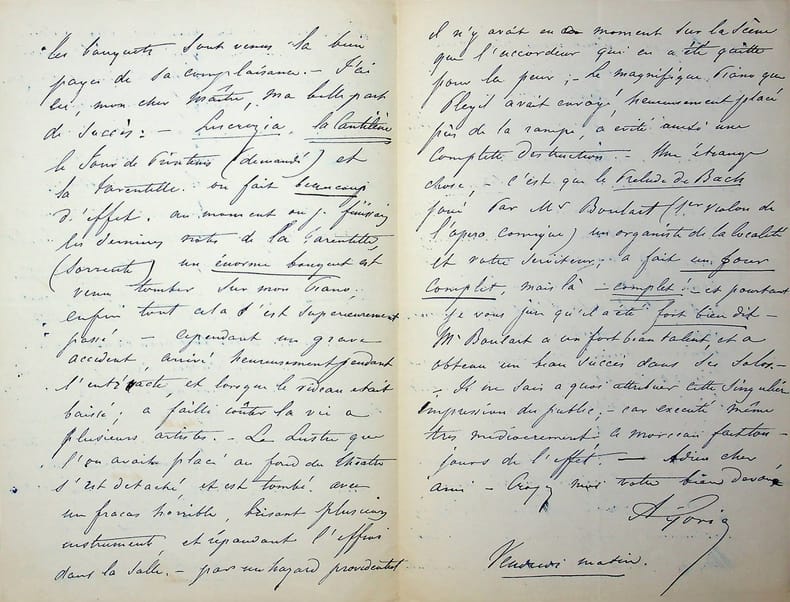 les bouquets sont venus la bien
payer de sa complaisance. — J'ai
eu, mon cher maître, ma belle part
de succès: — Lucrezia, la Cantilène
le Sons de Printems (demandé) et
la Tarentelle on fait beaucoup
d'effet. au moment ou je finissais
les dernieres notes de la Tarentelle,
(Sorrente) un énorme bouquet est
venu tomber sur mon Piano.
enfin tout cela s'est superieurement
passé. — Cependant un grave
accident, arrivé heureusement pendant
l'entr'acte, et lorsque le rideau etait
baissé; a failli coûter la vie a
plusieurs artistes. — Le Lustre que
l'on avait placé au fond du théatre
s'est detaché et est tombé avec
un fracas horrible, brisant plusieurs
instruments, et répandant l'effroi
dans la Salle. — par un hazard providentiel
il n'y avait en ce moment sur la Scène
que l'accordeur qui en a été quitte
pour la peur; — le magnifique Piano que
Pleyel avait envoyé, heureusement placé
près de la rampe, a évité aussi une
Complette destruction. — Une étrange
chose, — c'est que le Prelude de Bach
joué par Mr Boulart (1er violon de
l'opera Comique) un organiste de la localité
et votre serviteur; a fait un four
Complet, mais là — complet! — et pourtant
je vous jure qu'il a été fort bien dit —
Mr Boulart a un fort beau talent et a
obtenu un beau succès dans ses Solos —
— Je ne sais a quoi attribuer cette singulière
impression du public, — car executé même
très mediocrement, ce morceau fait tou-
jours de l'effet. — Adieu cher
ami — Croyez moi votre bien devoué
A Goria
Vendredi matin.